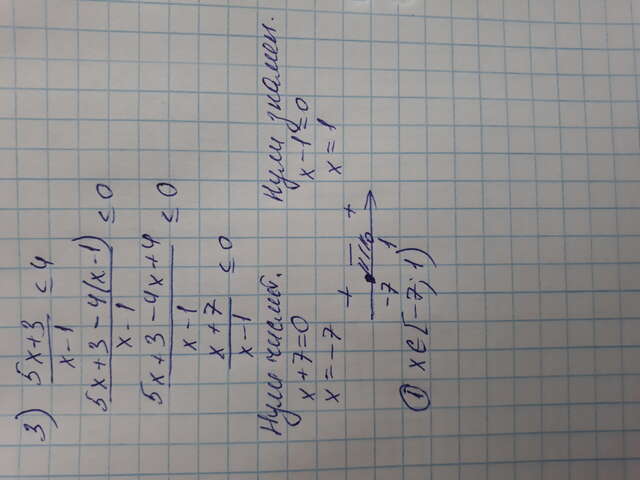 3) (5x+3)/(x-1) ≤ 4
(5x+3-4(x-1))/(x-1) ≤ 0
(5x+3-4x+4)/(x-1) ≤ 0
(x+7)/(x-1) ≤ 0
Нули числит. Нули знамен.
x+7=0 x-1=0
x=-7 x=1
+ - +
-7 1
① x∈[-7;1)